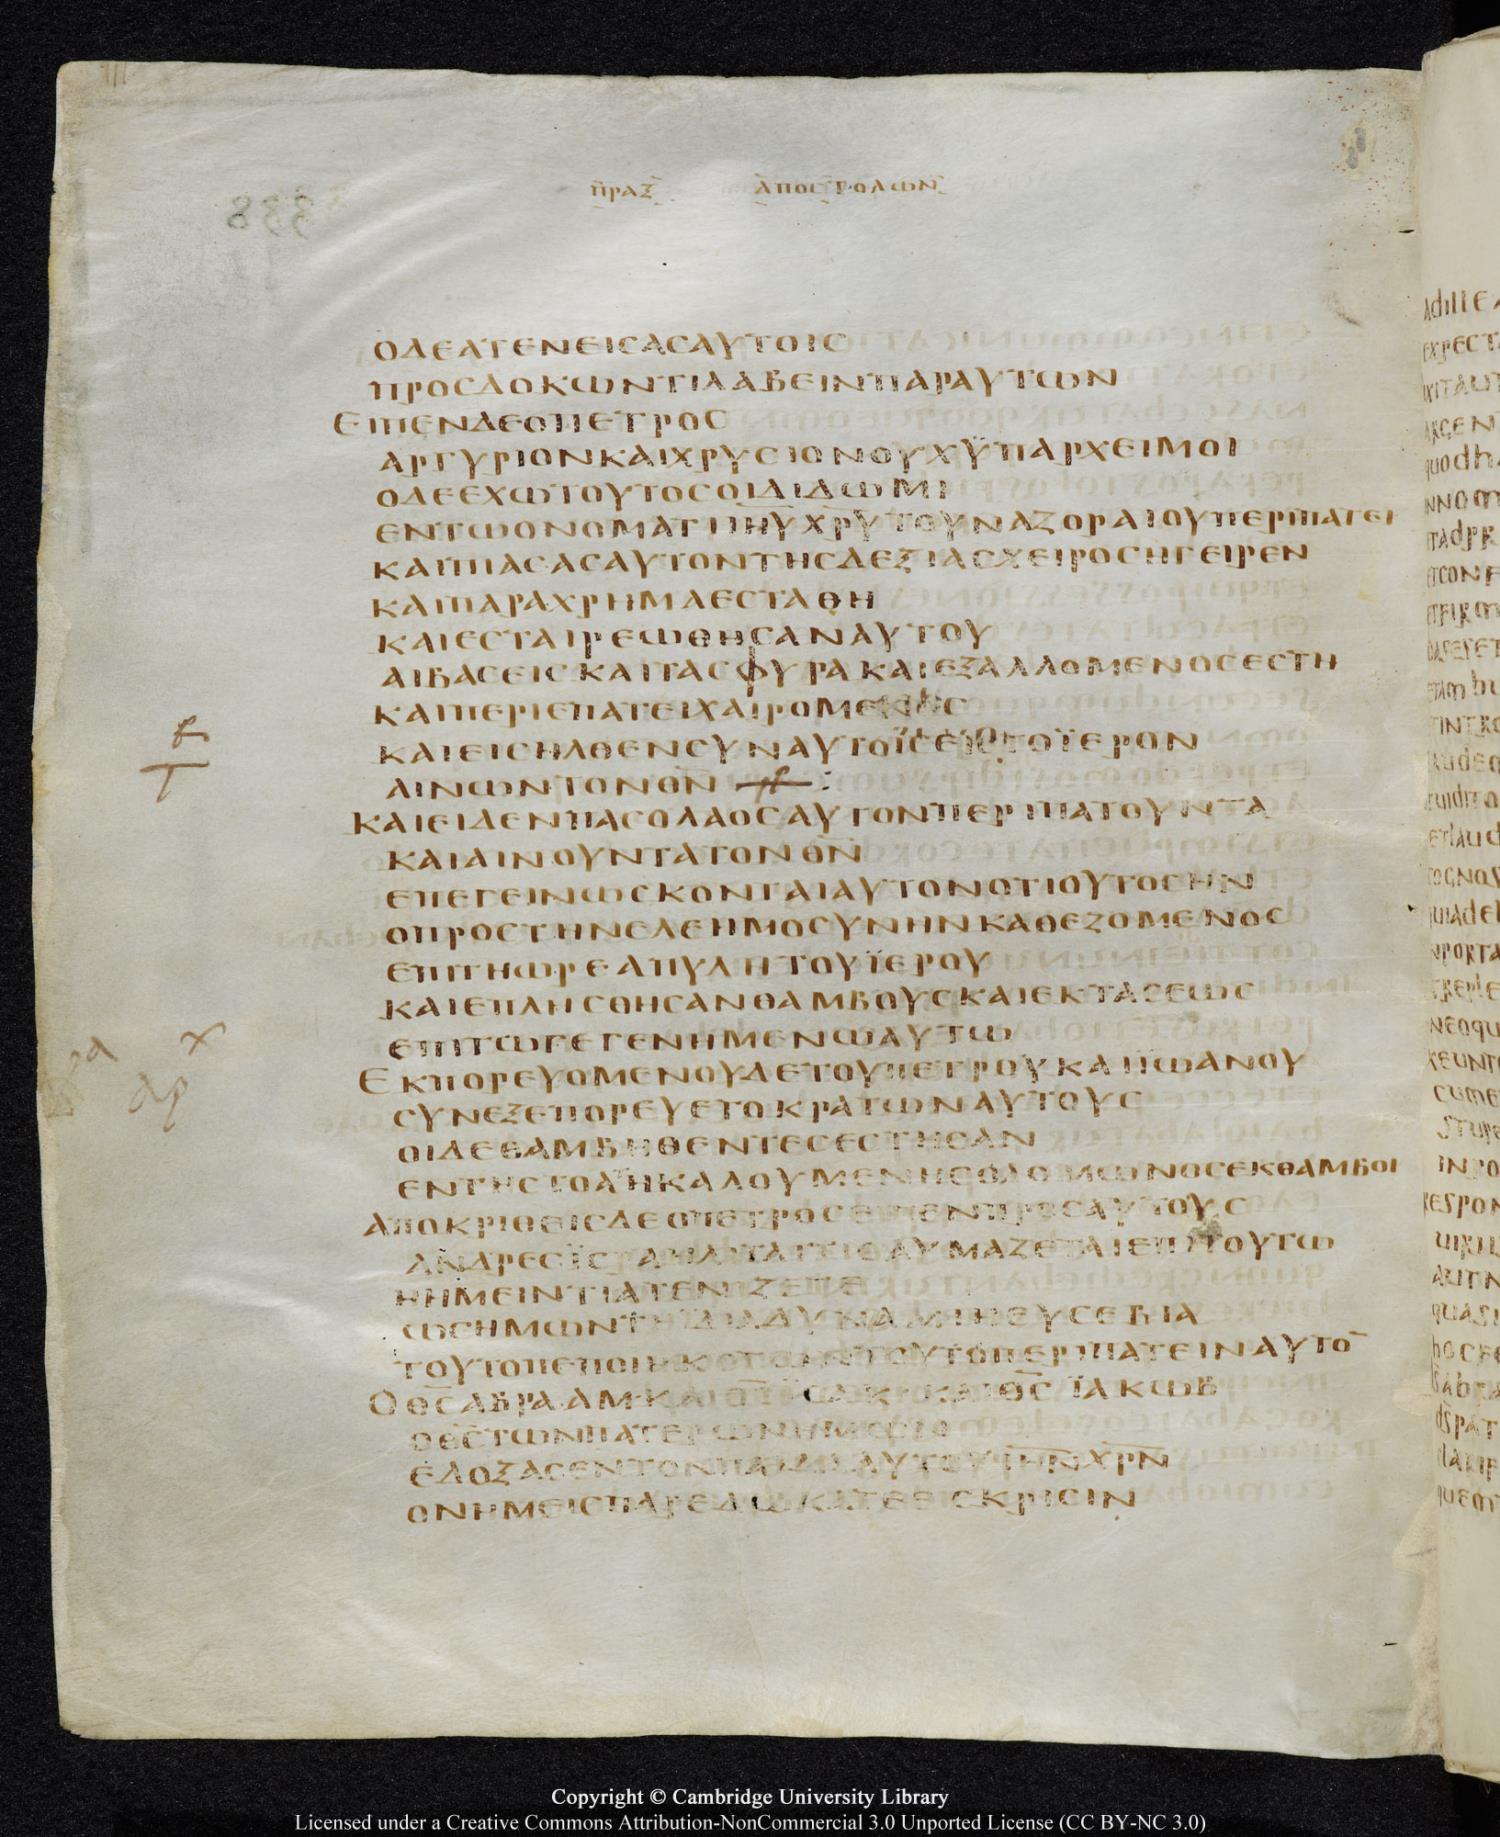 ΠΡΑΞ ΑΠΟΣΤΟΛΩΝ
ΟΔΕΑΤΕΝΕΙϹΑϹΑΥΤΟΙϹ
ΠΡΟϹΔΟΚΩΝΤΙΛΑΒΕΙΝΠΑΡΑΥΤΩΝ
ΕΙΠΕΝΔΕΟΠΕΤΡΟϹ
ΑΡΓΥΡΙΟΝΚΑΙΧΡΥϹΙΟΝΟΥΧΫΠΑΡΧΕΙΜΟΙ
ΟΔΕΕΧΩΤΟΥΤΟϹΟΙΔΙΔΩΜΙ
ΕΝΤΩΟΝΟΜΑΤΙΙΗΥΧΡΥΤΟΥΝΑΖΟΡΑΙΟΥΠΕΡΙΠΑΤΕΙ
ΚΑΙΠΙΑϹΑϹΑΥΤΟΝΤΗϹΔΕΞΙΑϹΧΕΙΡΟϹΗΓΕΙΡΕΝ
ΚΑΙΠΑΡΑΧΡΗΜΑΕϹΤΑΘΗ
ΚΑΙΕϹΤΑΙΡΕΩΘΗϹΑΝΑΥΤΟΥ
ΑΙΒΑϹΕΙϹΚΑΙΤΑϹΦΥΡΑΚΑΙΕΞΑΛΛΟΜΕΝΟϹΕϹΤΗ
ΚΑΙΠΕΡΙΕΠΑΤΕΙΧΑΙΡΟΜΕΝΟϹ
ΚΑΙΕΙϹΗΛΘΕΝϹΥΝΑΥΤΟΙϹΕΙϹΤΟΪΕΡΟΝ
ΑΙΝΩΝΤΟΝΘΝ̅
ΚΑΙΕΙΔΕΝΠΑϹΟΛΑΟϹΑΥΤΟΝΠΕΡΙΠΑΤΟΥΝΤΑ
ΚΑΙΑΙΝΟΥΝΤΑΤΟΝΘΝ̅
ΕΠΕΓΕΙΝΩϹΚΟΝΤΑΙΑΥΤΟΝΟΤΙΟΥΤΟϹΗΝ
ΟΠΡΟϹΤΗΝΕΛΕΗΜΟϹΥΝΗΝΚΑΘΕΖΟΜΕΝΟϹ
ΕΠΙΤΗΩΡΕΑΠΥΛΗΤΟΥΪΕΡΟΥ
ΚΑΙΕΠΛΗϹΘΗϹΑΝΘΑΜΒΟΥϹΚΑΙΕΚΤΑϹΕΩϹ
ΕΠΙΤΩΓΕΓΕΝΗΜΕΝΩΑΥΤΩ
ΕΚΠΟΡΕΥΟΜΕΝΟΥΔΕΤΟΥΠΕΤΡΟΥΚΑΙΪΩΑΝΟΥ
ϹΥΝΕΞΕΠΟΡΕΥΕΤΟΚΡΑΤΩΝΑΥΤΟΥϹ
ΟΙΔΕΘΑΜΒΗΘΕΝΤΕϹΕϹΤΗϹΑΝ
ΕΝΤΗϹΤΟΑΗΚΑΛΟΥΜΕΝΗϹΟΛΟΜΩΝΟϹΕΚΘΑΜΒΟΙ
ΑΠΟΚΡΙΘΕΙϹΔΕΟΠΕΤΡΟϹΕΙΠΕΝΠΡΟϹΑΥΤΟΥϹ
ΑΝΔΡΕϹΪϹΤΡΑΗΛΙΤΑΙΤΙΘΑΥΜΑΖΕΤΑΙΕΠΙΤΟΥΤΩ
ΗΗΜΕΙΝΤΙΑΤΕΝΙΖΕΤΕ
ΩϹΗΜΩΝΤΗΪΔΙΑΔΥΝΑΜΙΗΕΥϹΕΒΙΑ
ΤΟΥΤΟΠΕΠΟΙΗΚΟΤΩΝΤΟΥΤΟΠΕΡΙΠΑΤΕΙΝΑΥΤΟ̅
ΟΘϹ̅ΑΒΡΑΑΜΚΑΙΘϹ̅ΪϹΑΚΚΑΙΘϹ̅ΪΑΚΩΒ
ΟΘϹ̅ΤΩΝΠΑΤΕΡΩΝΗΜΩΝ
ΕΔΟΞΑϹΕΝΤΟΝΠΑΙΔΑΑΥΤΟΥΙΗΝ̅ΧΡΝ̅
ΟΝΗΜΕΙϹΠΑΡΕΔΩΚΑΤΕΕΙϹΚΡΙϹΙΝ
Copyright © Cambridge University Library
Licensed under a Creative Commons Attribution-NonCommercial 3.0 Unported License (CC BY-NC 3.0)